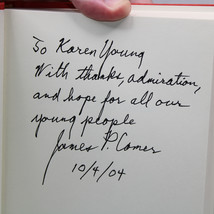 To Karen Young
With thanks, admiration,
and hope for all our
young people
James P. Comer
10/4/04